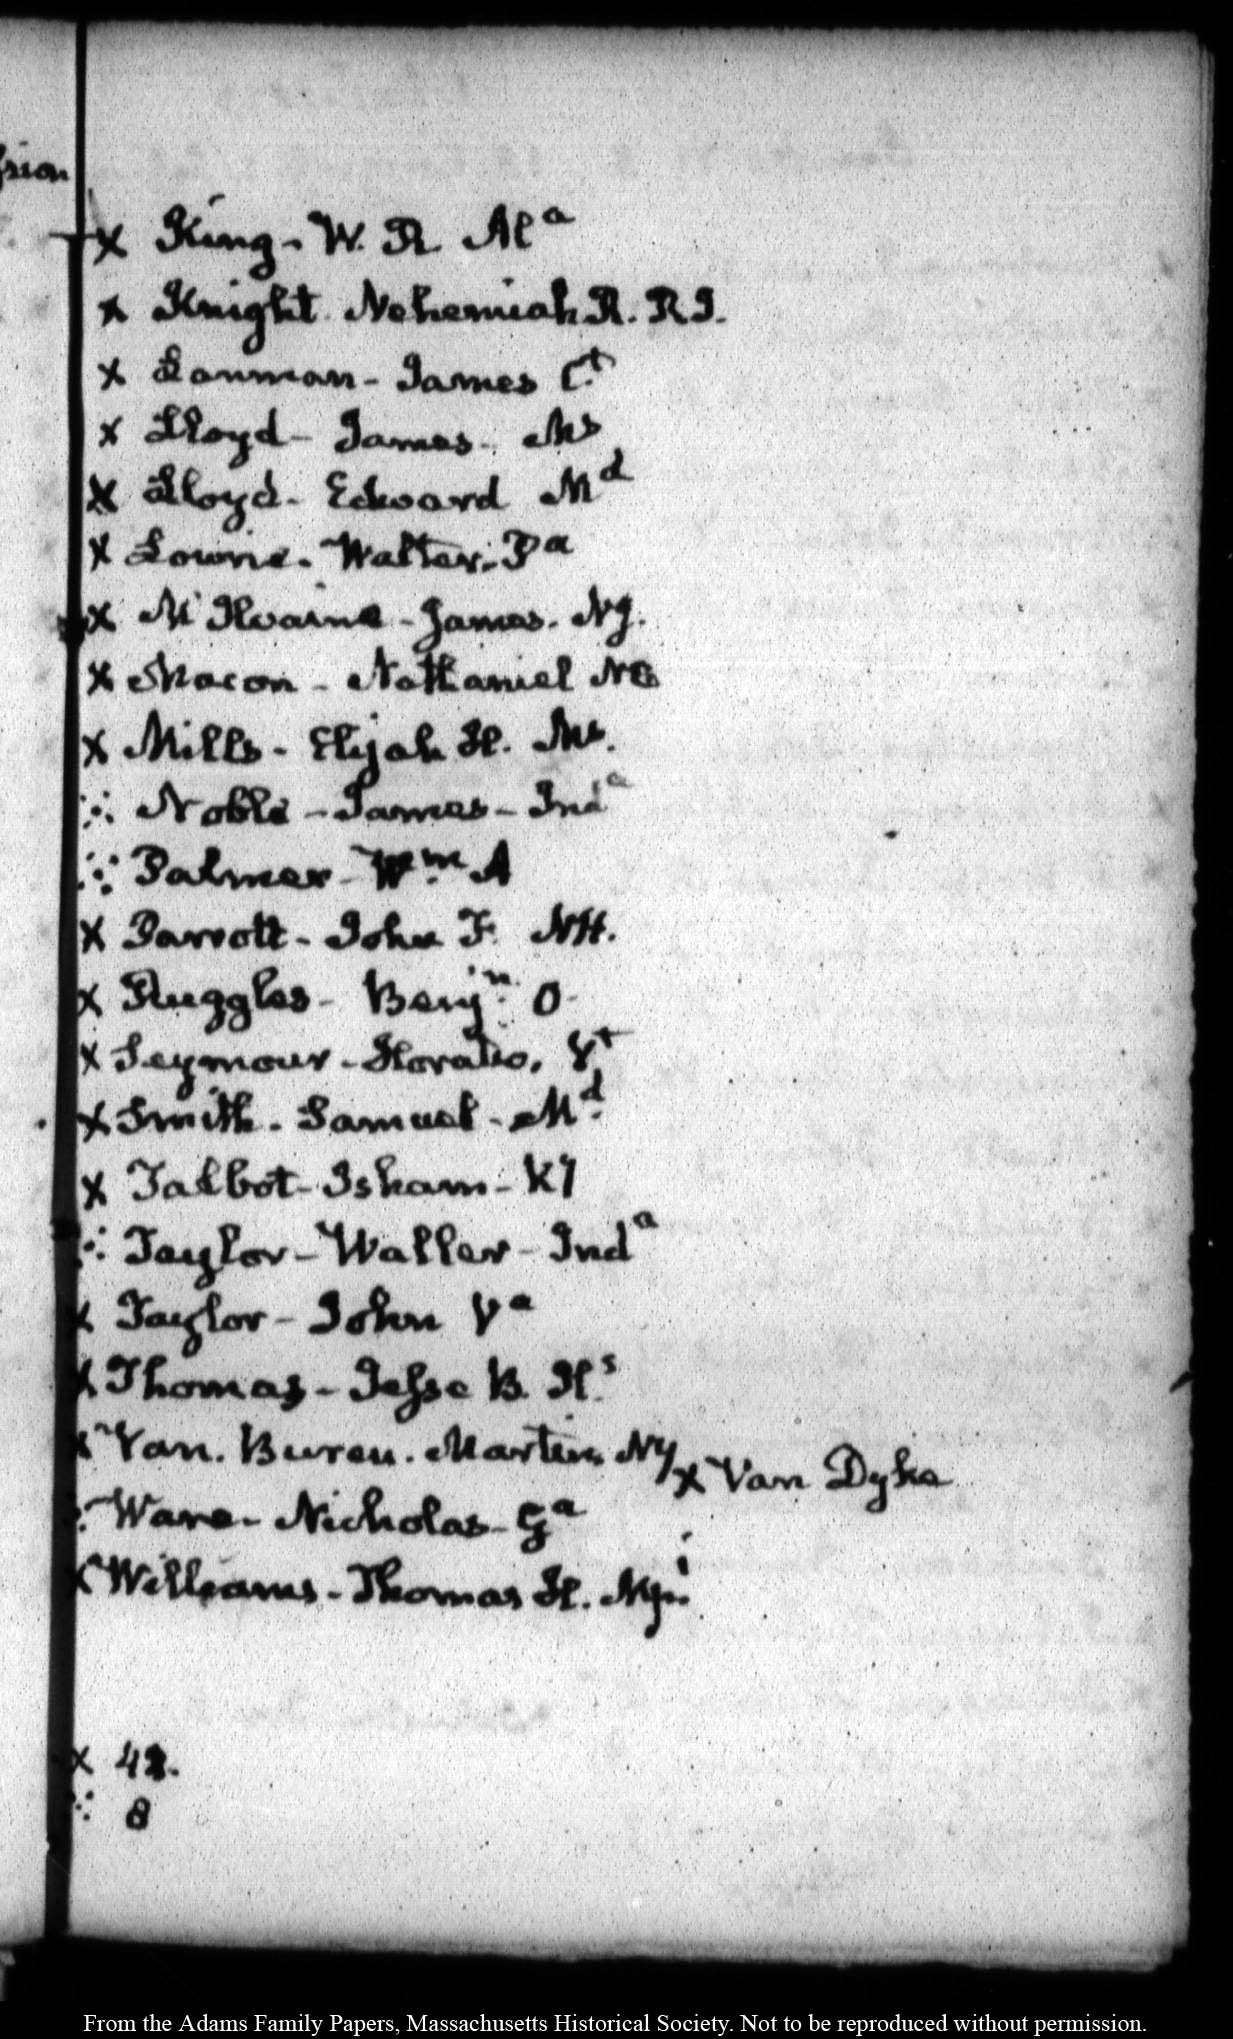 × King - W. R. Alª
× Knight Nehemiah R. R I.
× Lanman - James Cᵗ
× Lloyd - James - Ms
× Lloyd - Edward Mᵈ
× Lowrie - Walter - Pª
× Mᶜ Ilvaine - James - NJ.
× Macon - Nathaniel NC
× Mills - Elijah H. Ms.
⁙ Noble - James - Indª
⁙ Palmer - Wᵐ A
× Parrott - John F. NH.
× Ruggles - Benjⁿ O -
× Seymour - Horatio, Vᵗ
× Smith - Samuel - Mᵈ
× Talbot - Isham - Ky
⁙ Taylor - Waller - Indª
× Taylor - John Vª
× Thomas - Jesse B. Ilˢ
× Van Buren. Martin NY × Van Dyke
⁙ Ware - Nicholas - Gª
× Williams - Thomas H. Mpⁱ
× 42.
⁙ 8
From the Adams Family Papers, Massachusetts Historical Society. Not to be reproduced without permission.